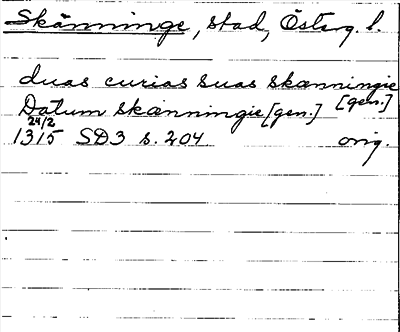 Skänninge, stad, Österg. l.
duas curias suas skænningie [gen.]
Datum skænningie [gen.]
24/2
1315 SD3 s. 204 orig.